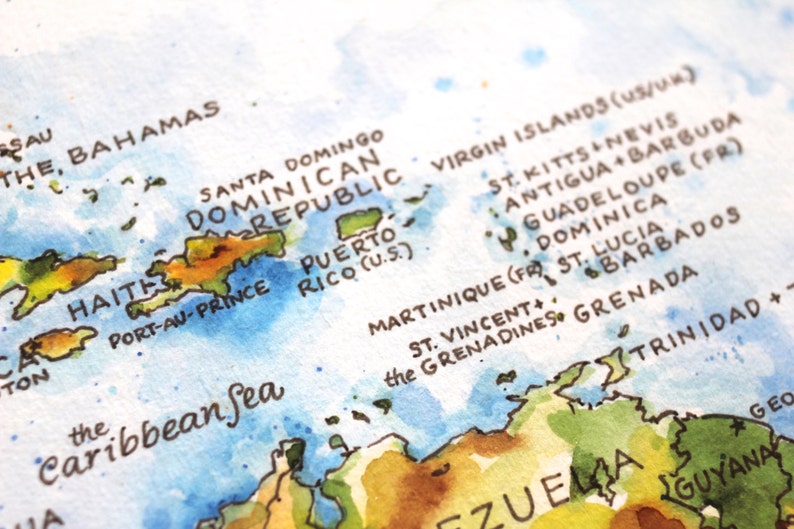 SAU
THE BAHAMAS
SANTA DOMINGO
DOMINICAN
REPUBLIC
VIRGIN ISLANDS (US/U.K.)
ST. KITTS + NEVIS
ANTIGUA + BARBUDA
GUADELOUPE (FR)
DOMINICA
ST. LUCIA
BARBADOS
MARTINIQUE (FR)
ST. VINCENT +
the GRENADINES
GRENADA
TRINIDAD +
HAITI
PORT-AU-PRINCE
PUERTO
RICO (U.S.)
CA
TON
the
Caribbean Sea
EZUELA
GUYANA
GEO
UA